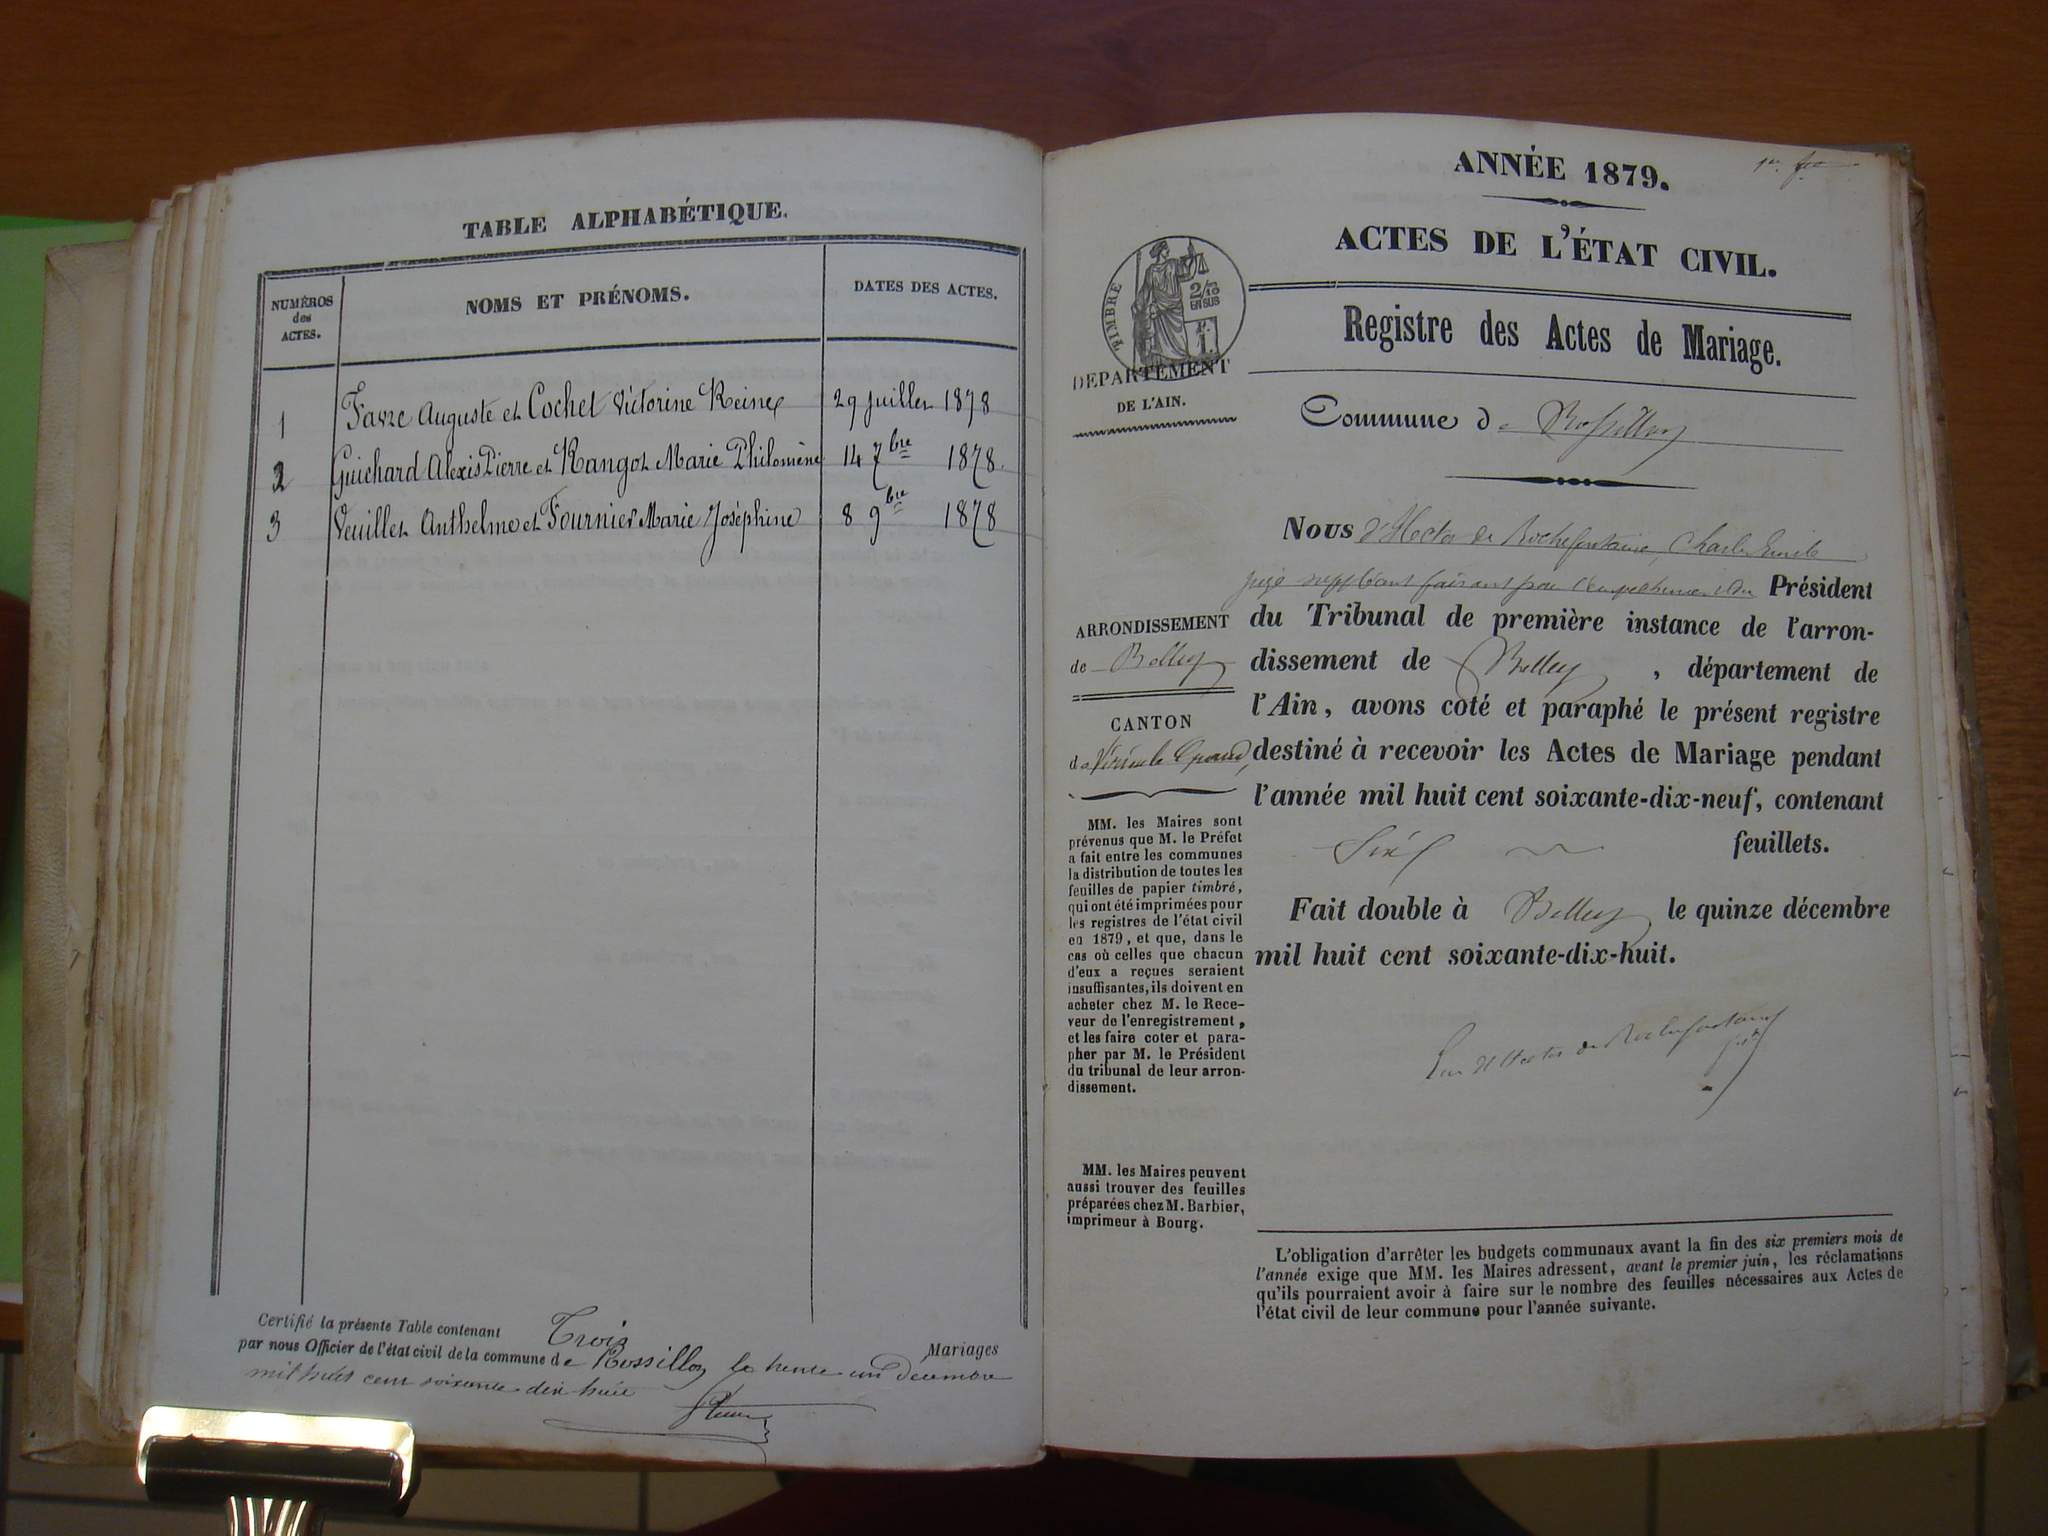 TABLE ALPHABÉTIQUE.
NUMÉROS
des
ACTES.
NOMS ET PRÉNOMS.
DATES DES ACTES.
1 Favre Auguste et Cochet Victorine Reine 29 juillet 1878
2 Guichard Alexis Pierre et Rangot Marie Philomène 14 7bre 1878.
3 Veuillet Anthelme et Fournier Marie Joséphine 8 9bre 1878
Certifié la présente Table contenant Trois Mariages
par nous Officier de l'état civil de la commune de Rossillon le trente un Décembre
mil huit cent soixante dix huit
ANNÉE 1879.
ACTES DE L'ÉTAT CIVIL.
TIMBRE
2/10
EN SUS
DÉPARTEMENT
DE L'AIN.
Registre des Actes de Mariage.
Commune de Rossillon
ARRONDISSEMENT
de Belley
CANTON
de Virieu le Grand,
MM. les Maires sont
prévenus que M. le Préfet
a fait entre les communes
la distribution de toutes les
feuilles de papier timbré,
qui ont été imprimées pour
les registres de l'état civil
en 1879, et que, dans le
cas où celles que chacun
d'eux a reçues seraient
insuffisantes, ils doivent en
acheter chez M. le Rece-
veur de l'enregistrement,
et les faire coter et para-
pher par M. le Président
du tribunal de leur arron-
dissement.
MM. les Maires peuvent
aussi trouver des feuilles
préparées chez M. Barbier,
imprimeur à Bourg.
Nous d'Hector de Rochefontaine, Charles Emile
juge suppléant faisant pour l'empêchement du Président
du Tribunal de première instance de l'arron-
dissement de Belley, département de
l'Ain, avons coté et paraphé le présent registre
destiné à recevoir les Actes de Mariage pendant
l'année mil huit cent soixante-dix-neuf, contenant
Six feuillets.
Fait double à Belley le quinze décembre
mil huit cent soixante-dix-huit.
d'Hector de Rochefontaine
L'obligation d'arrêter les budgets communaux avant la fin des six premiers mois de
l'année exige que MM. les Maires adressent, avant le premier juin, les réclamations
qu'ils pourraient avoir à faire sur le nombre des feuilles nécessaires aux Actes de
l'état civil de leur commune pour l'année suivante.